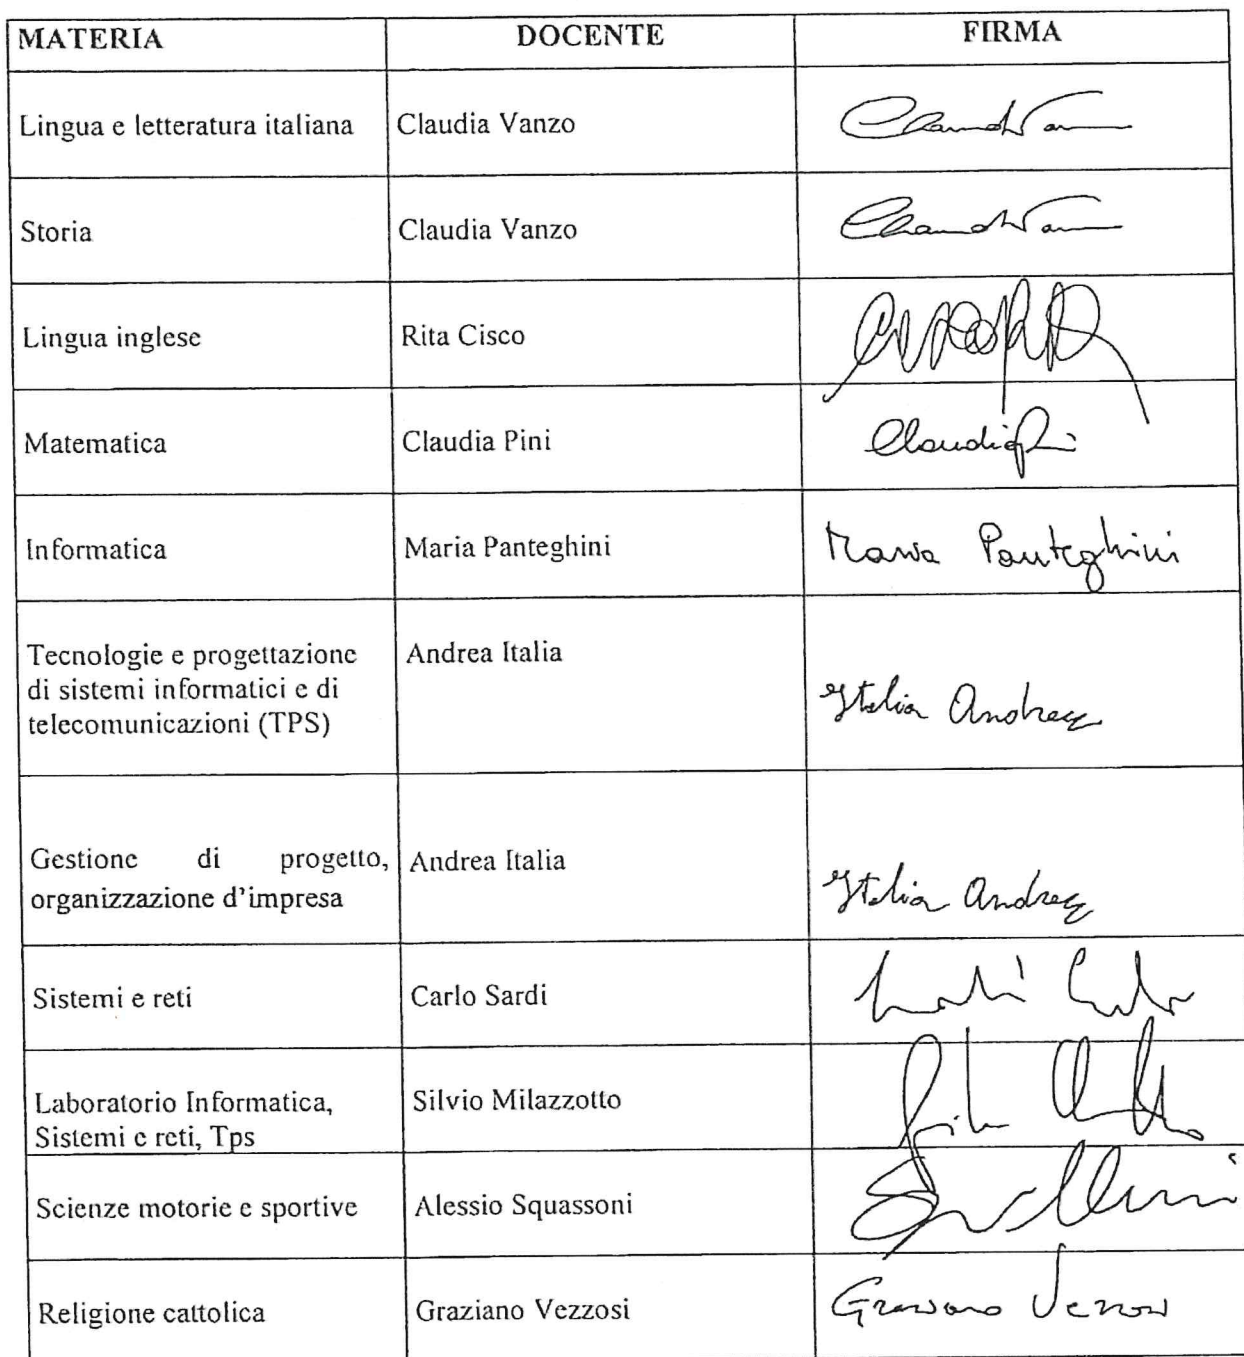 MATERIA DOCENTE FIRMA
Lingua e letteratura italiana Claudia Vanzo
Storia Claudia Vanzo
Lingua inglese Rita Cisco
Matematica Claudia Pini Claudia Pini
Informatica Maria Panteghini Maria Panteghini
Tecnologie e progettazione Andrea Italia
di sistemi informatici e di
telecomunicazioni (TPS) Italia Andrea
Gestione di progetto, Andrea Italia
organizzazione d'impresa Italia Andrea
Sistemi e reti Carlo Sardi
Laboratorio Informatica, Silvio Milazzotto
Sistemi e reti, Tps
Scienze motorie e sportive Alessio Squassoni
Religione cattolica Graziano Vezzosi Graziano Vezzosi